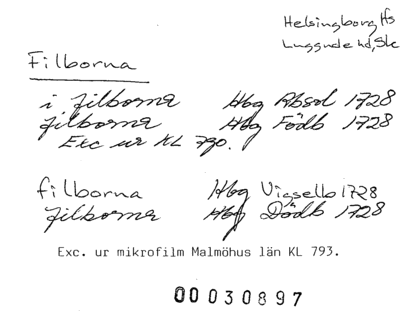 Helsingborg Hfs
Luggude hd, Sk
Filborna
i filborna Hbg Absol 1728
filborna Hbg Födb 1728
Exc ur KL 790.
filborna Hbg Vigselb 1728
filborna Hbg Dödb 1728
Exc. ur mikrofilm Malmöhus län KL 793.
00030897